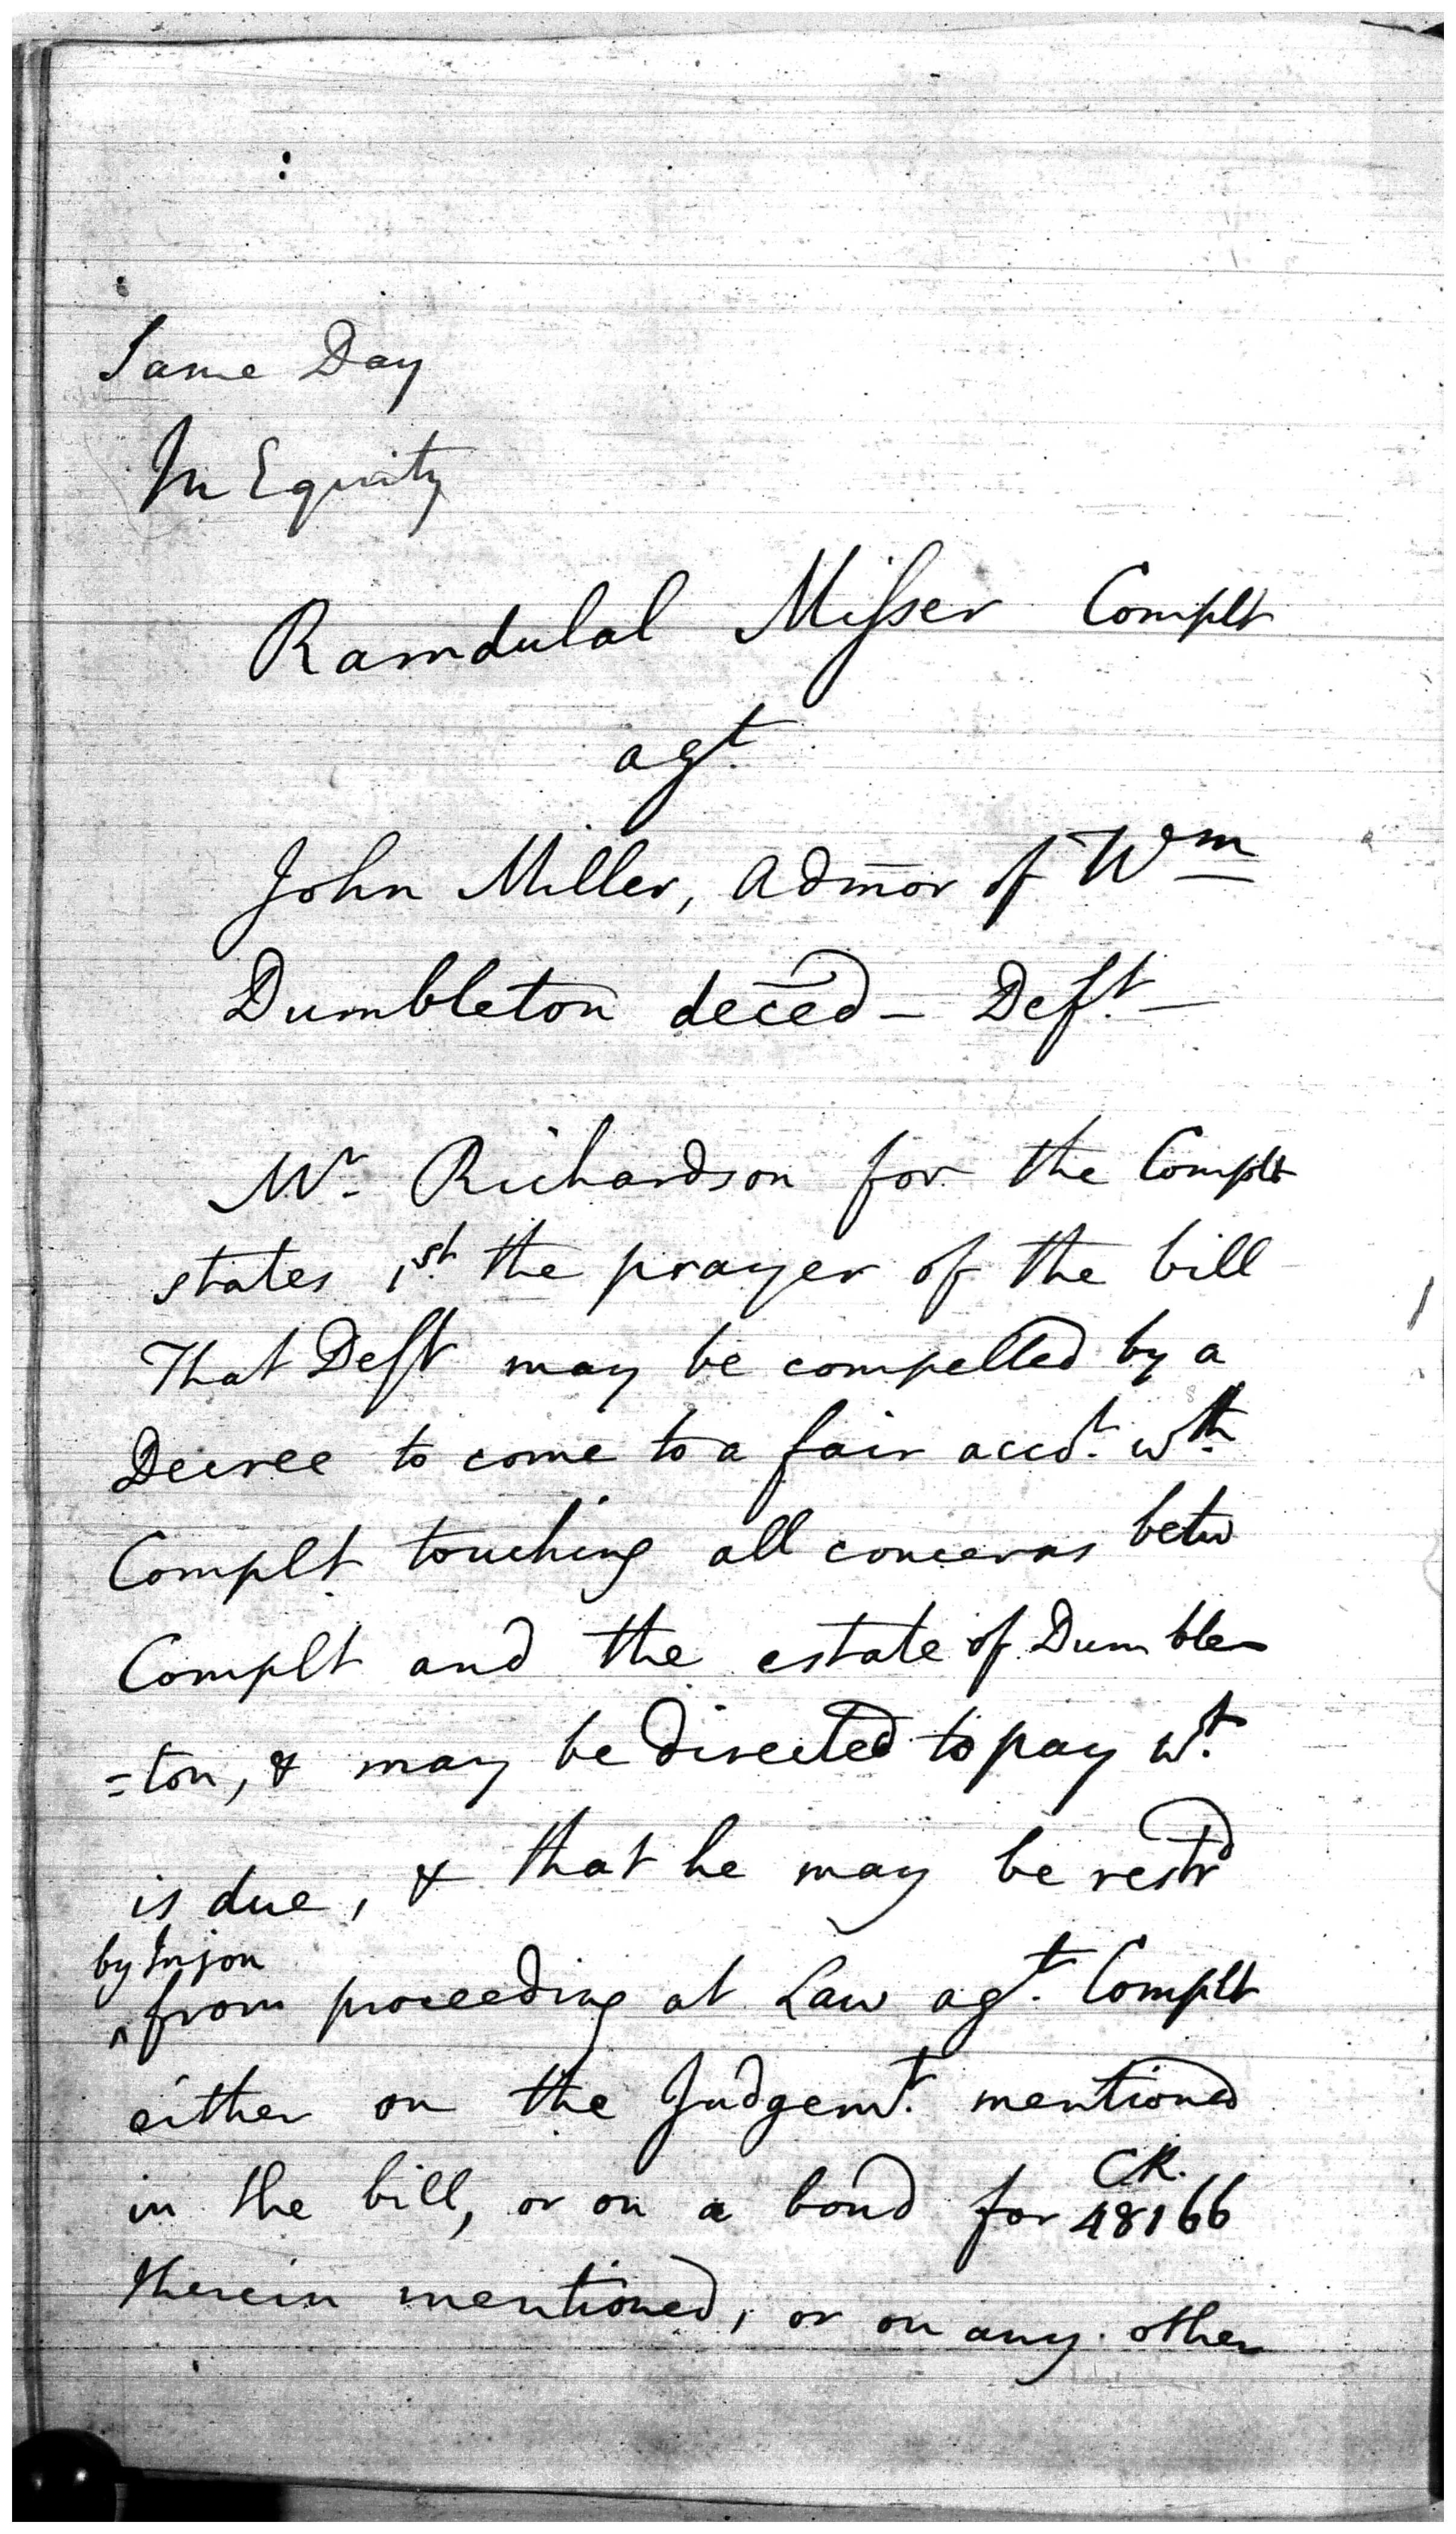 Same Day
In Equity
Ramdulal Misser Complt
agt.
John Miller, Admor of Wm
Dumbleton deced – Deft. –
Mr. Richardson for the Complt
states 1st. the prayer of the bill
That Deft may be compelled by a
Decree to come to a fair acct. wth.
Complt touching all concerns betw
Complt and the estate of Dumble
=ton, & may be directed to pay wt.
is due, & that he may be restrd
by Injon
^from proceeding at Law agt. Complt
either on the Judgemt. mentioned
in the bill, or on a bond for CR. 48166
therein mentioned, or on any other